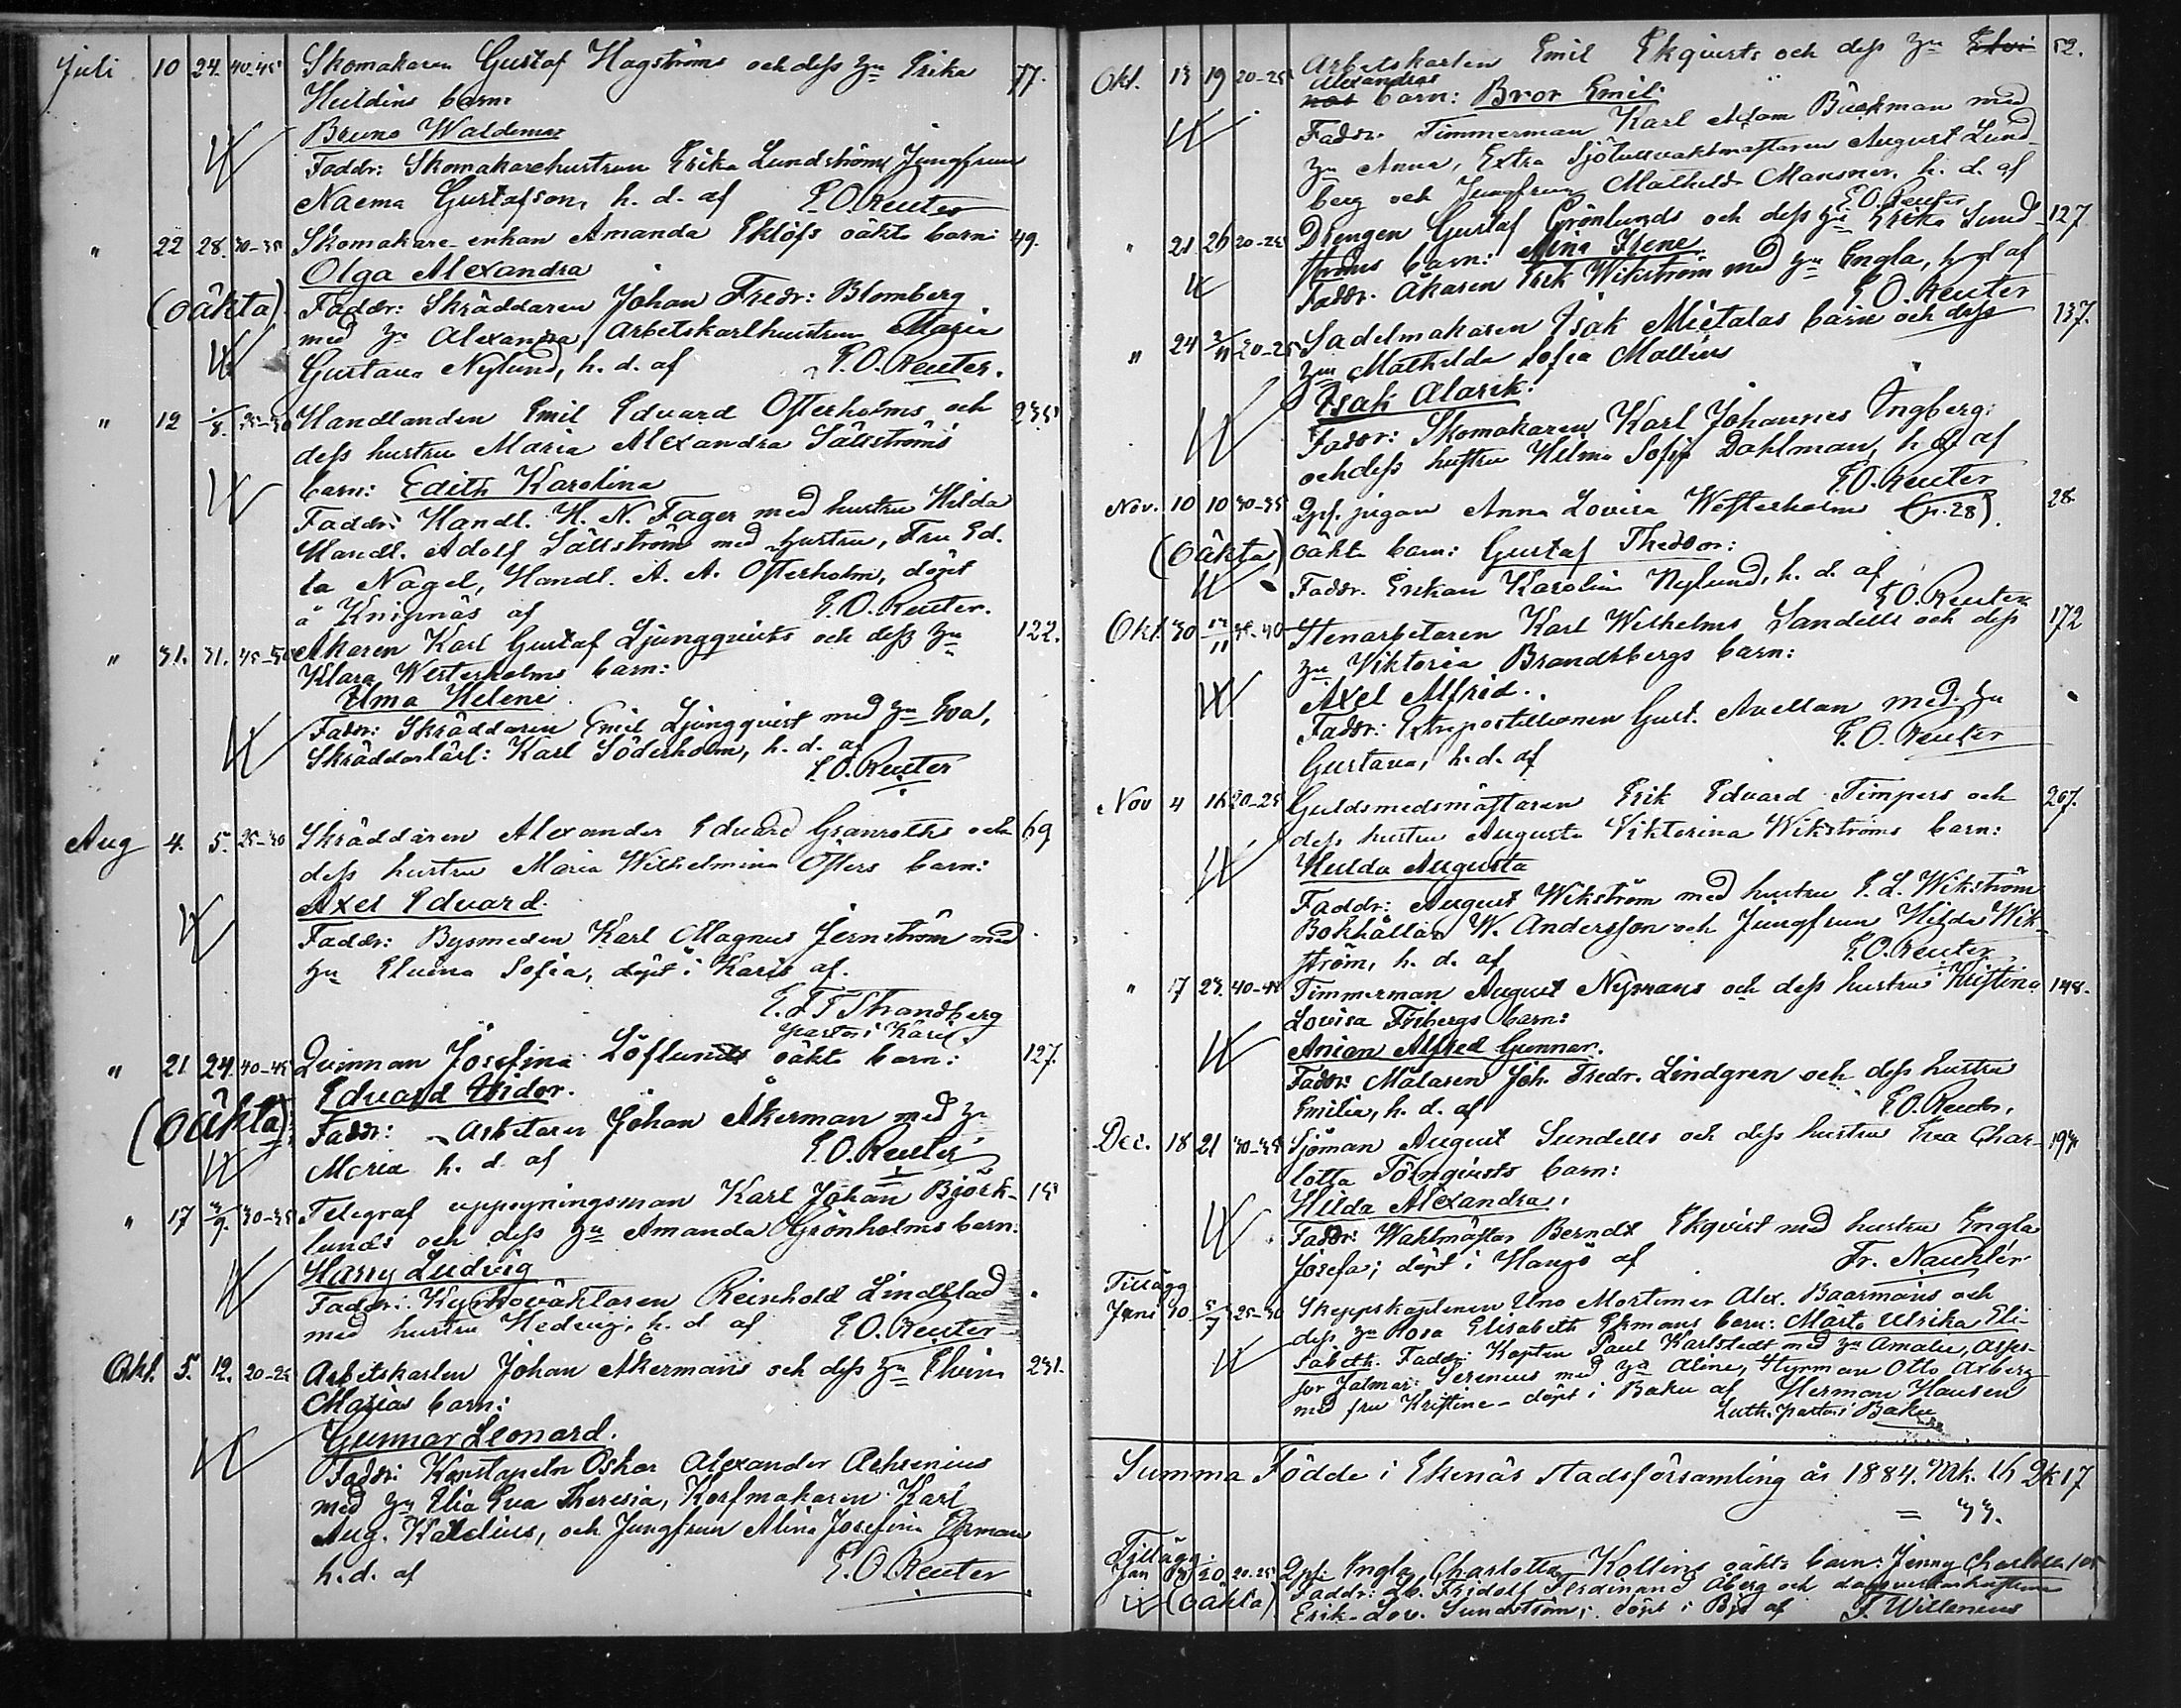 Juli 10 24. 40-45 Skomakaren Gustaf Hagströms och dess hu Erika 77.
Huldins barn:
Bruno Waldemar
Faddr: Skomakarehustrun Erika Lundström, Jungfrun
Naema Gustafson, h. d. af E.O. Reuter
" 22 28. 30-35 Skomakare enkan Amanda Eklöfs oäkta barn: 49.
Olga Alexandra
(oäkta) Faddr: Skräddaren Johan Fredr: Blomberg
med hu Alexandra, Arbetskarlhustrun Maria
Gustava Nylund, h. d. af E.O. Reuter.
" 12 1/8. 25-30 Handlanden Emil Edvard Österholms och 235
dess hustru Maria Alexandra Sällströms
barn: Edith Karolina
Faddr: Handl. H. N. Fager med hustru Hilda
Handl. Adolf Sällström med hustru, Fru Ed.
la Nagel, Handl. A. A. Österholm, döpt
å Knipnäs af E.O. Reuter.
" 31. 31. 45-50 Åkaren Karl Gustaf Ljungqvists och dess hu 122.
Klara Westerholms barn:
Elma Helene
Faddr: Skräddaren Emil Ljungqvist med hu Eva,
Skräddarlärl: Karl Söderholm, h. d. af
E.O. Reuter
Aug 4. 5. 25-30 Skräddaren Alexander Edvard Granroths och 69
dess hustru Maria Wilhelmina Östers barn:
Axel Edvard.
Faddr: Bysmeden Karl Magnus Jernström med
hu Elvina Sofia, döpt i Karis af.
E. F. T. Strandberg
pastor i Karis.
" 21 24. 40-45 Qvinnan Josefina Löflunds oäkta barn: 127.
Edvard Widor.
(oäkta) Faddr: Arbetaren Johan Åkerman med hu
Maria h. d. af E.O. Reuter
" 17 3/9. 30-35 Telegraf uppsyningsman Karl Johan Björk- 15
lunds och dess hu Amanda Grönholms barn:
Harry Ludvig
Faddr: Kyrkoväktaren Reinhold Lindblad
med hustru Hedvig, h. d. af E.O. Reuter
Okt. 5. 12. 20-25 Arbetskarlen Johan Åkermans och dess hu Elvira 231.
Marias barn:
Gunnar Leonard.
Faddr: Oskar Alexander Achrenius
med hu Elia Eva Theresia, Korfmakaren Karl
Aug. Katelius, och Jungfrun Alina Josefina Ekman
h. d. af E.O. Reuter
Okt. 13 19 20-25 Arbetskarlen Emil Ekqvists och dess hu 52.
Alexandras
barn: Bror Emil
Faddr. Timmerman Karl Adam Bäckman med
hu Anna, Extra Sjötullvaktmästaren August Lund-
berg och Jungfrun Mathilda Mansner, h. d. af
E.O. Reuter
" 21 26 20-25 Drengen Gustaf Grönlunds och dess hu Erika Sund- 127
ströms barn: Aina Irene
Faddr. Åkaren Erik Wikström med hu Engla, h. d. af
E.O. Reuter
" 24 2/11 20-25 Sadelmakaren Isak Mietalas barn och dess 137.
hu Mathilda Sofia Mallius
Isak Alarik.
Faddr: Skomakaren Karl Johannes Ingberg
och dess hustru Hilma Sofia Dahlman, h. d. af
E.O. Reuter
Nov. 10 10 30-35 Qpf. pigan Anna Lovisa Westerholm (p. 28) 28
(oäkta) oäkta barn: Gustaf Theodor:
Faddr. Enkan Karolin Nylund, h. d. af
E.O. Reuter
Okt. 30 /11 35-40 Stenarbetaren Karl Wilhelms Sandells och dess 172
hu Viktoria Brandtbergs barn:
Axel Alfrid.
Faddr: Extrapostillionen Gust. Avellan med hu
Gustava, h. d. af E.O. Reuter
Nov 4 16 20-25 Guldsmedsmästaren Erik Edvard Timpers och 207.
dess hustru Augusta Viktorina Wikströms barn:
Hulda Augusta
Faddr: August Wikström med hustru E. L. Wikström
Bokhållar W. Andersson och Jungfrun Hilda Wik-
ström, h. d. af E.O. Reuter
" 17 23. 40-45 Timmerman August Nymans och dess hustru Kristina 148.
Lovisa Fribergs barn:
Anian Alfred Gunnar.
Faddr: Målaren Joh. Fredr. Lindgren och dess hustru
Emilia, h. d. af E.O. Reuter.
Dec. 18 21 30-35 Sjöman August Sundells och dess hustru Eva Char-
lotta Törnqvists barn:
Hilda Alexandra.
Faddr: Waktmästar Berndt Ekqvist med hustru Engla
Josefa; döpt i Hangö af Fr. Nauklér
Tillägg
Juni 30 5/7 25-30 Skeppskaptenen Uno Mortimer Alex. Baarmans och
dess hu Rosa Elisabeth Ekmans barn: Märta Ulrika Eli-
sabeth. Faddr: Kapten Paul Karlstedt med hu Amalie, Asses-
sor Jalmar Serenius med hu Aline, Styrman Otto Axberg
med fru Kristine - döpt i Baku af Herman Hansen
Luth. pastor i Baku
Summa Födde i Ekenäs stadsförsamling år 1884. Mk. 16 Qk 17
= 33.
Tillägg:
Jan 20 20-25 Qpf. Engla Charlotta Kollins oäkta barn: Jenny Charlotta 105
(oäkta) Faddr: Fridolf Ferdinand Åberg och
Erik. Lov. Sundström; döpt i af F. Willenius